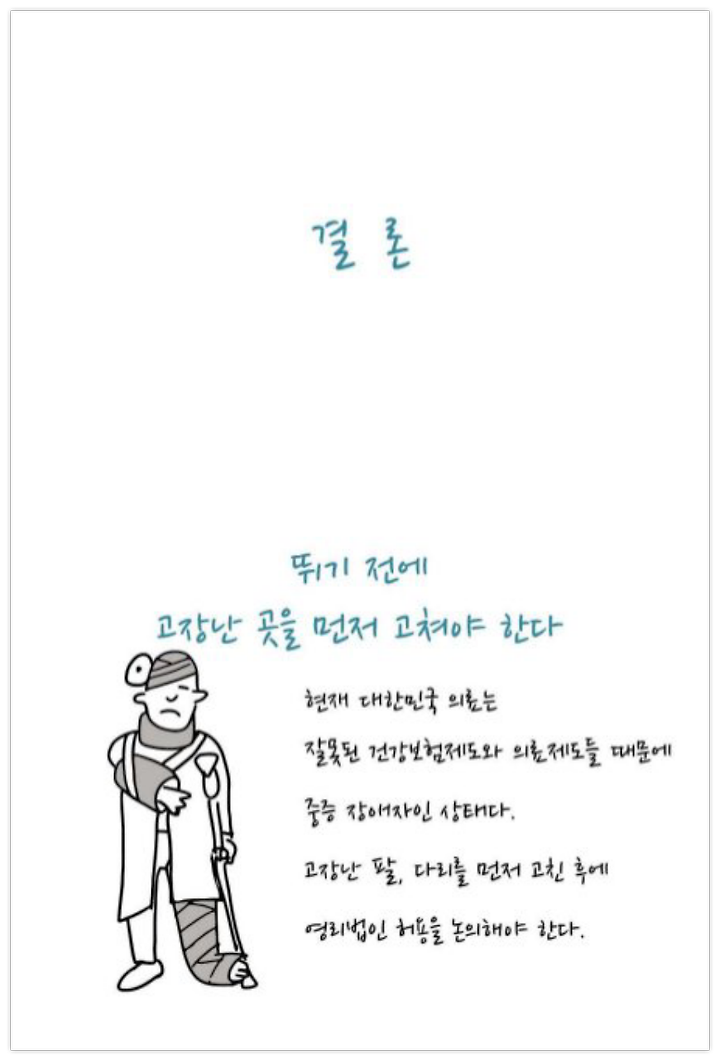 결 론
뛰기 전에
고장난 곳을 먼저 고쳐야 한다
현재 대한민국 의료는
잘못된 건강보험제도와 의료제도들 때문에
중증 장애자인 상태다.
고장난 팔, 다리를 먼저 고친 후에
영리법인 허용을 논의해야 한다.